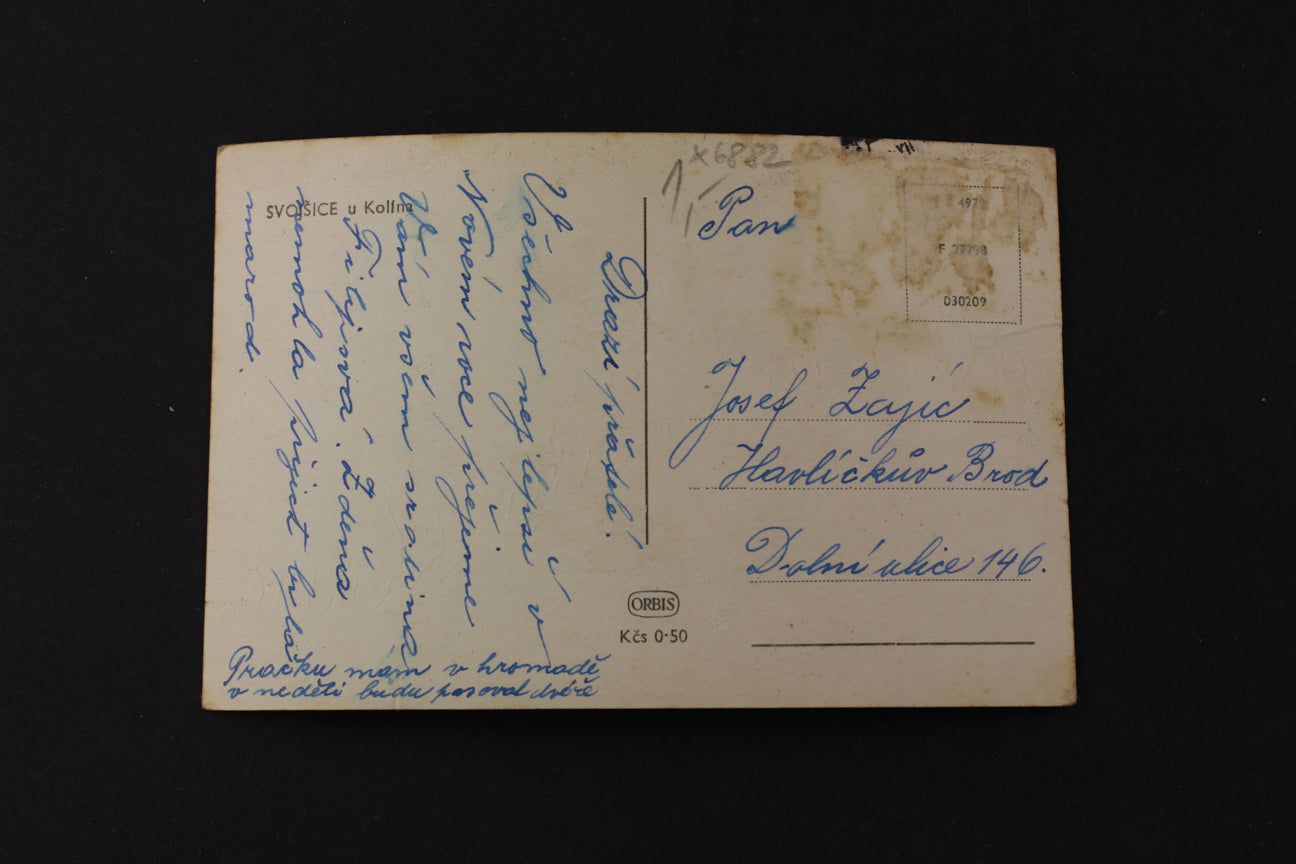 SVOJŠICE u Kolína
Drazí přátelé!
Všechno nejlepší v
Novém roce přejeme
Vám všem srodina
Filipova. Zdena
nemohla přijet byla
marod.
Pračku mám v hromadě
v neděli budu pasovat dvéře
x6882
Pan
497
F 27798
030209
Josef Zajíc
Havlíčkův Brod
Dolní ulice 146.
ORBIS
Kčs 0·50